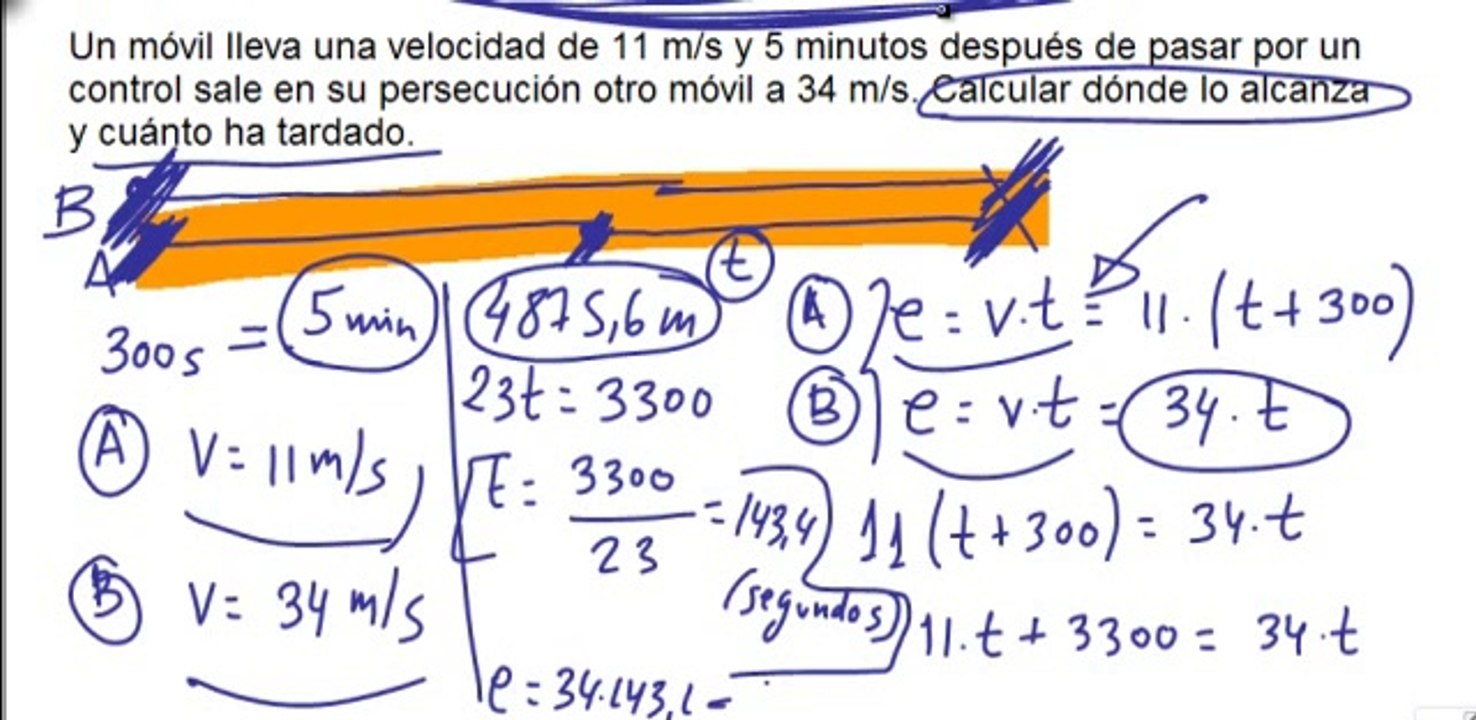 Un móvil lleva una velocidad de 11 m/s y 5 minutos después de pasar por un
control sale en su persecución otro móvil a 34 m/s. Calcular dónde lo alcanza
y cuánto ha tardado.
B
A
300s = 5 min
A V = 11 m/s
B V = 34 m/s
4875,6 m t
23t = 3300
t = 3300/23 = 143,4
(segundos)
e = 34.143,4 =
A e = v.t = 11.(t+300)
B e = v.t = 34.t
11(t+300) = 34.t
11.t + 3300 = 34.t